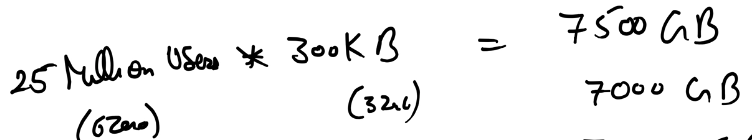 25 Million Users * 300KB = 7500 GB
(6Zero) (3Zero) 7000 GB